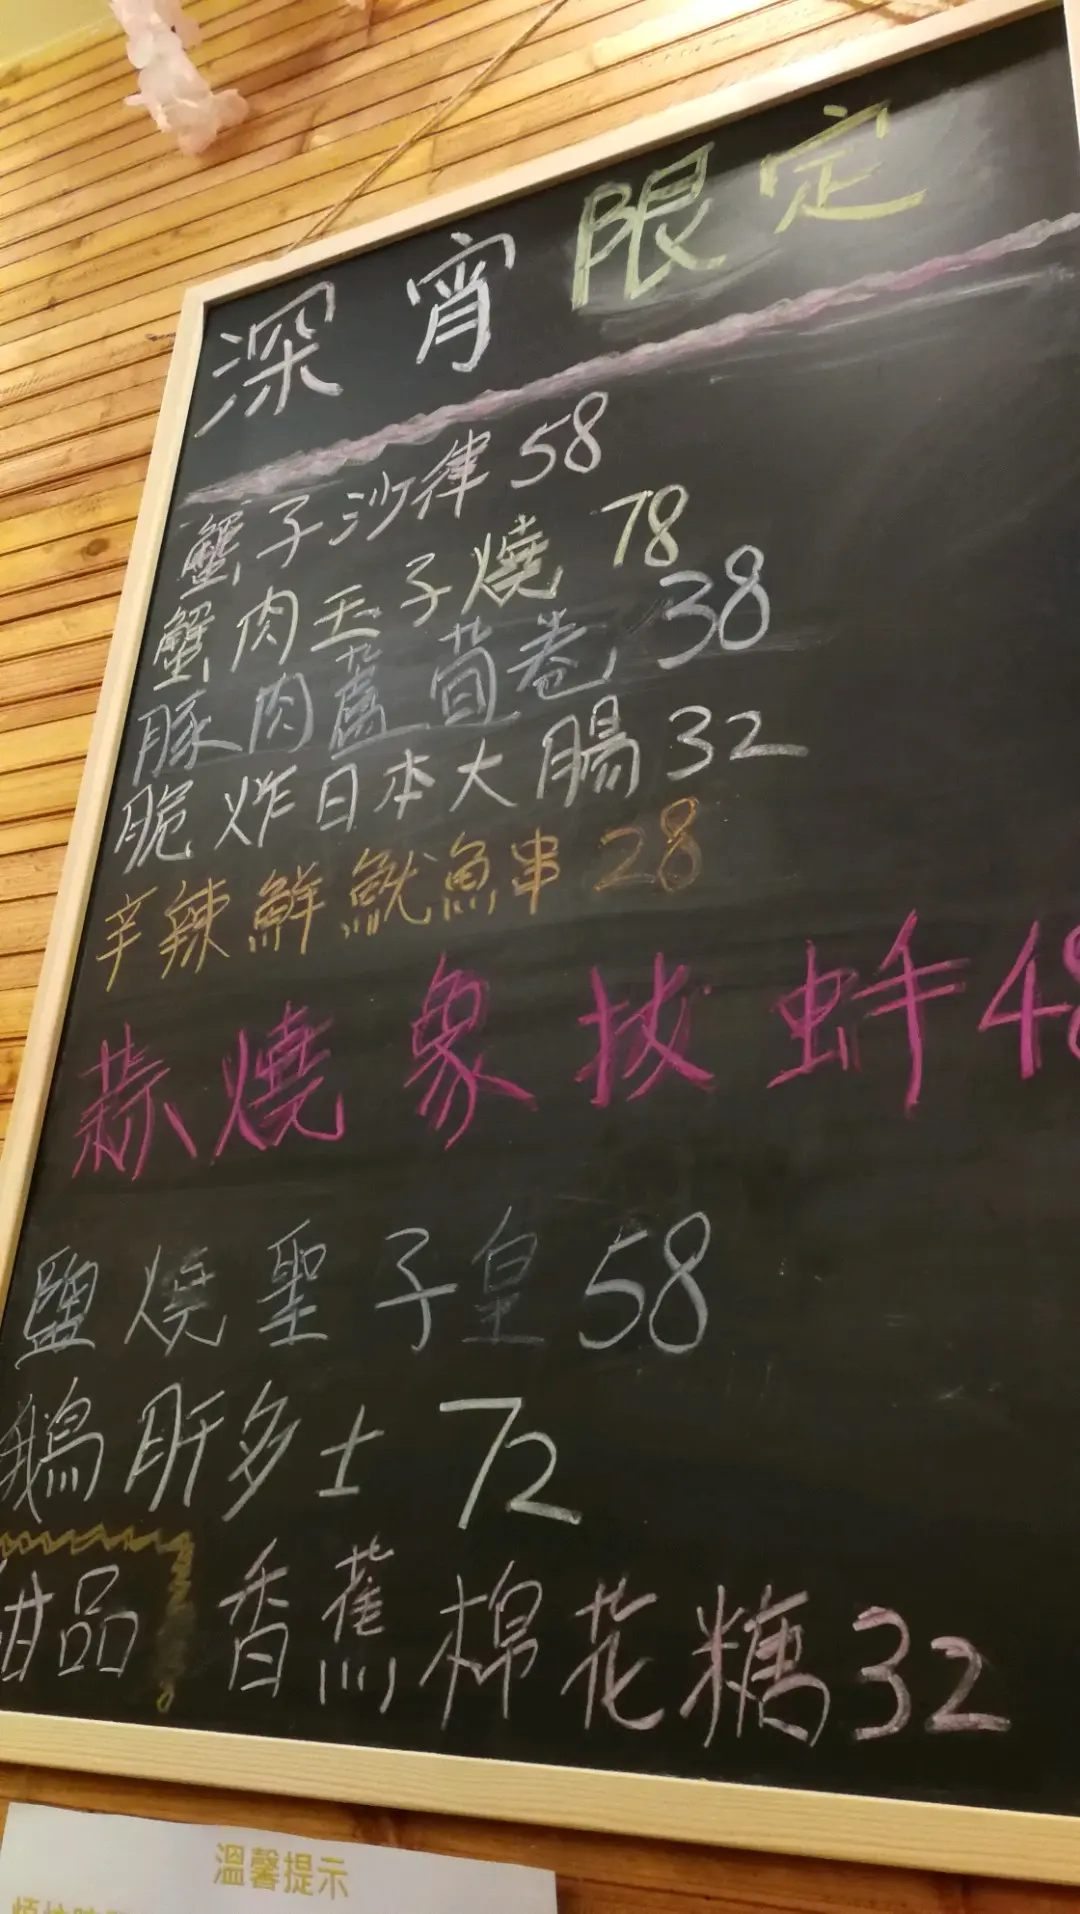 深宵限定
蟹子沙律 58
蟹肉玉子燒 78
豚肉蘆筍卷 38
脆炸日本大腸 32
辛辣鮮魷魚串 28
蒜燒象拔蚌 48
鹽燒聖子皇 58
鵝肝多士 72
甜品 香蕉棉花糖 32
溫馨提示